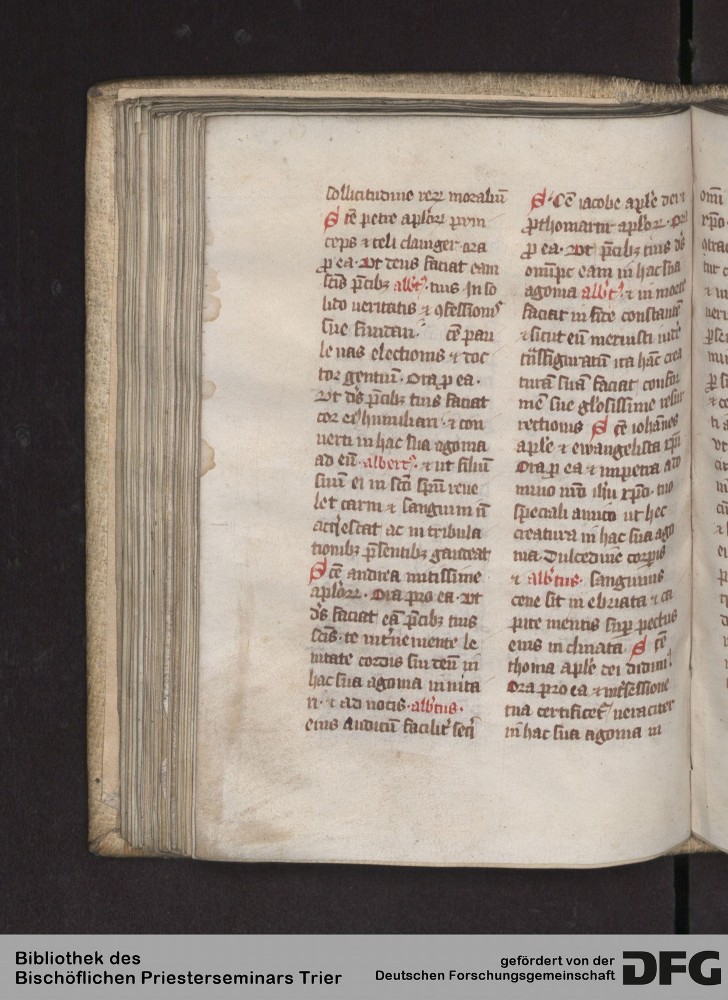 sollicitudine rerum moralium
Sce petre aplorum prin
ceps et celi claviger ora
p ea. Ut deus faciat eam
scis pcibz albtus tuis in so
lido veritatis et confessionis
sue fundari. Sce pau
le vas electionis et doc
tor gentium. Ora p ea.
Ut ds pcibz tuis faciat
cor eius humiliari et con
verti in hac sua agonia
ad eum. albert et ut filium
suum ei in sci spm reve
let carni et sanguini n
acquiescat ac in tribula
tionibz psentibz gaudeat
Sce andrea mitissime
aplorum. Ora pro ea. Ut
ds faciat eam pcibz tuis
scis. te interveniente le
nitate cordis sui deum in
hac sua agonia invita
ri et ad vocis albtus.
eius auditum facilit sequi
Sce iacobe aple dei et
pthomartir aplorum. Ora
p ea. Ut pcibz tuis ds
omips eam in hac sua
agonia albt et in morte
faciat in fide constantem
et sicut eum meruisti videre
transfiguratum ita hanc crea
turam suam faciat confor
mem sue gloosissime resur
rectionis Sce iohannes
aple et ewangelista xpi
Ora p ea et impetra a do
mino nro ihu xpo. tuo
speciali amico ut hec
creatura in hac sua ago
nia. Dulcedine corpis
et albtus. sanguinis
cene sit inebriata et ca
pite mentis sup pectus
eius inclinata. Sce
thoma aple dei didimi
Ora pro ea et intcessione
tua certificet veraciter
in hac sua agonia in
Bibliothek des
Bischöflichen Priesterseminars Trier
gefördert von der
Deutschen Forschungsgemeinschaft
DFG